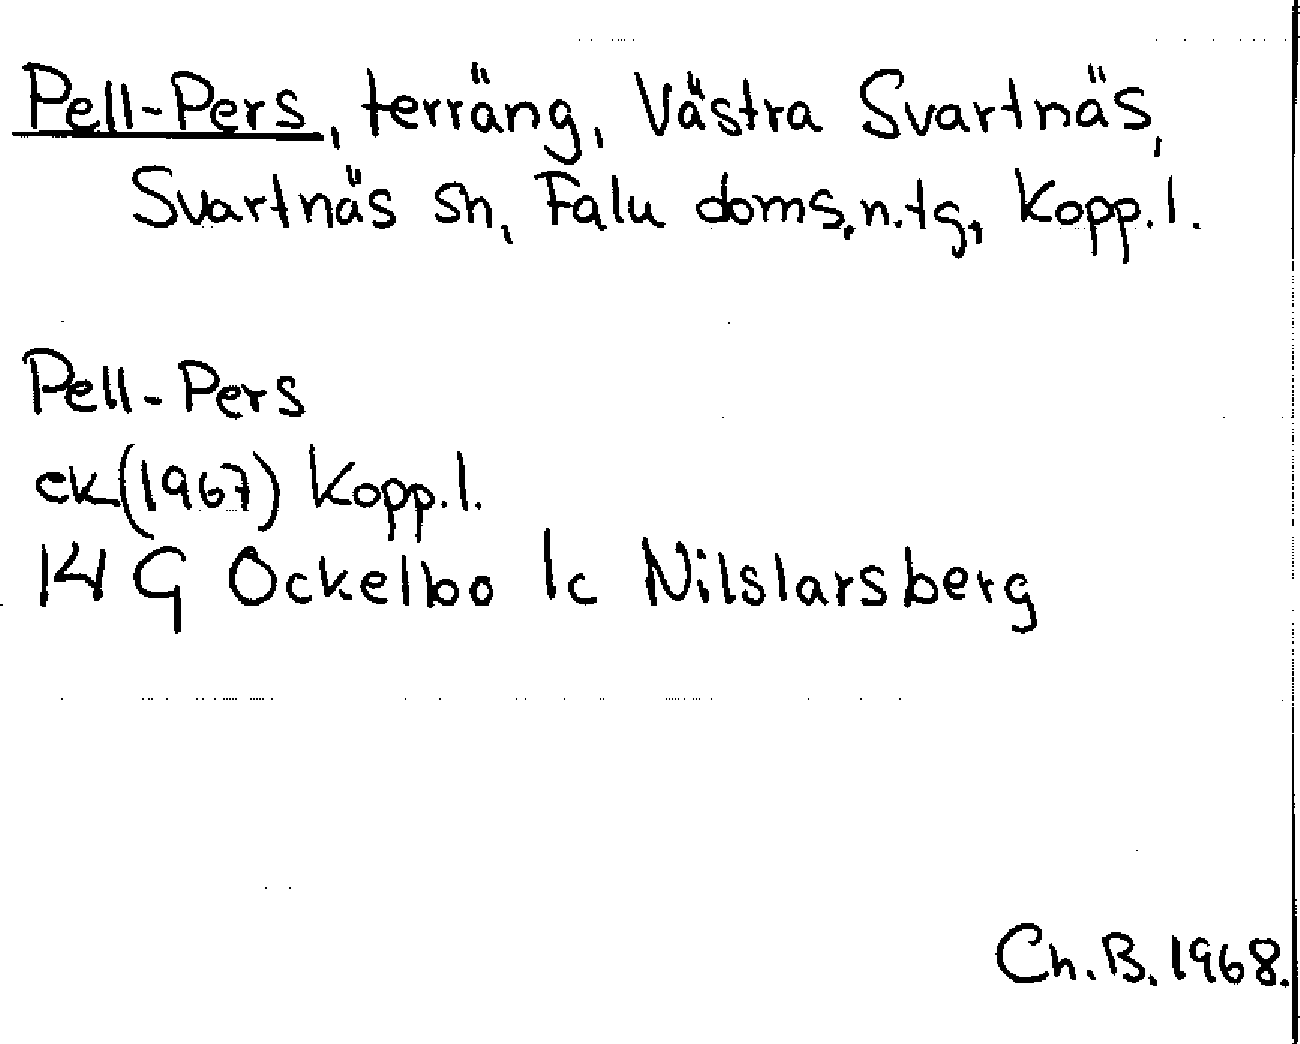 Pell-Pers, terräng, Västra Svartnäs,
Svartnäs sn, Falu doms.n.tg., Kopp.l.
Pell-Pers
ek(1967) Kopp.l.
14 G Ockelbo 1c Nilslarsberg
Ch.B.1968.